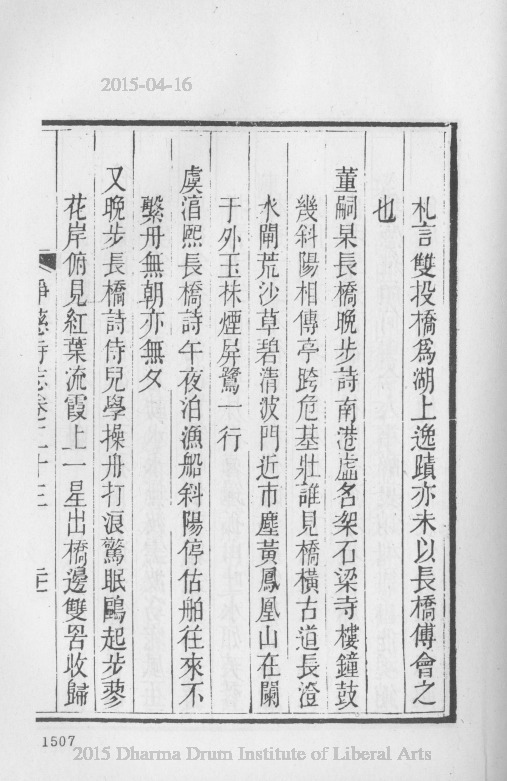 2015-04-16
札言雙投橋爲湖上逸蹟亦未以長橋傅會之
也
董嗣杲長橋晚步詩南港虛名架石梁寺樓鐘鼓
幾斜陽相傳亭跨危基壯誰見橋橫古道長澄
水閘荒沙草碧清波門近市塵黃鳳凰山在闌
干外玉抹煙屏鷺一行
虞淯熙長橋詩午夜泊漁船斜陽停估舶往來不
繫舟無朝亦無夕
又晚步長橋詩侍兒學操舟打浪驚眠鷗起步蓼
花岸俯見紅葉流霞上一星出橋邊雙罟收歸
淨慈寺志卷二十三
1507
2015 Dharma Drum Institute of Liberal Arts